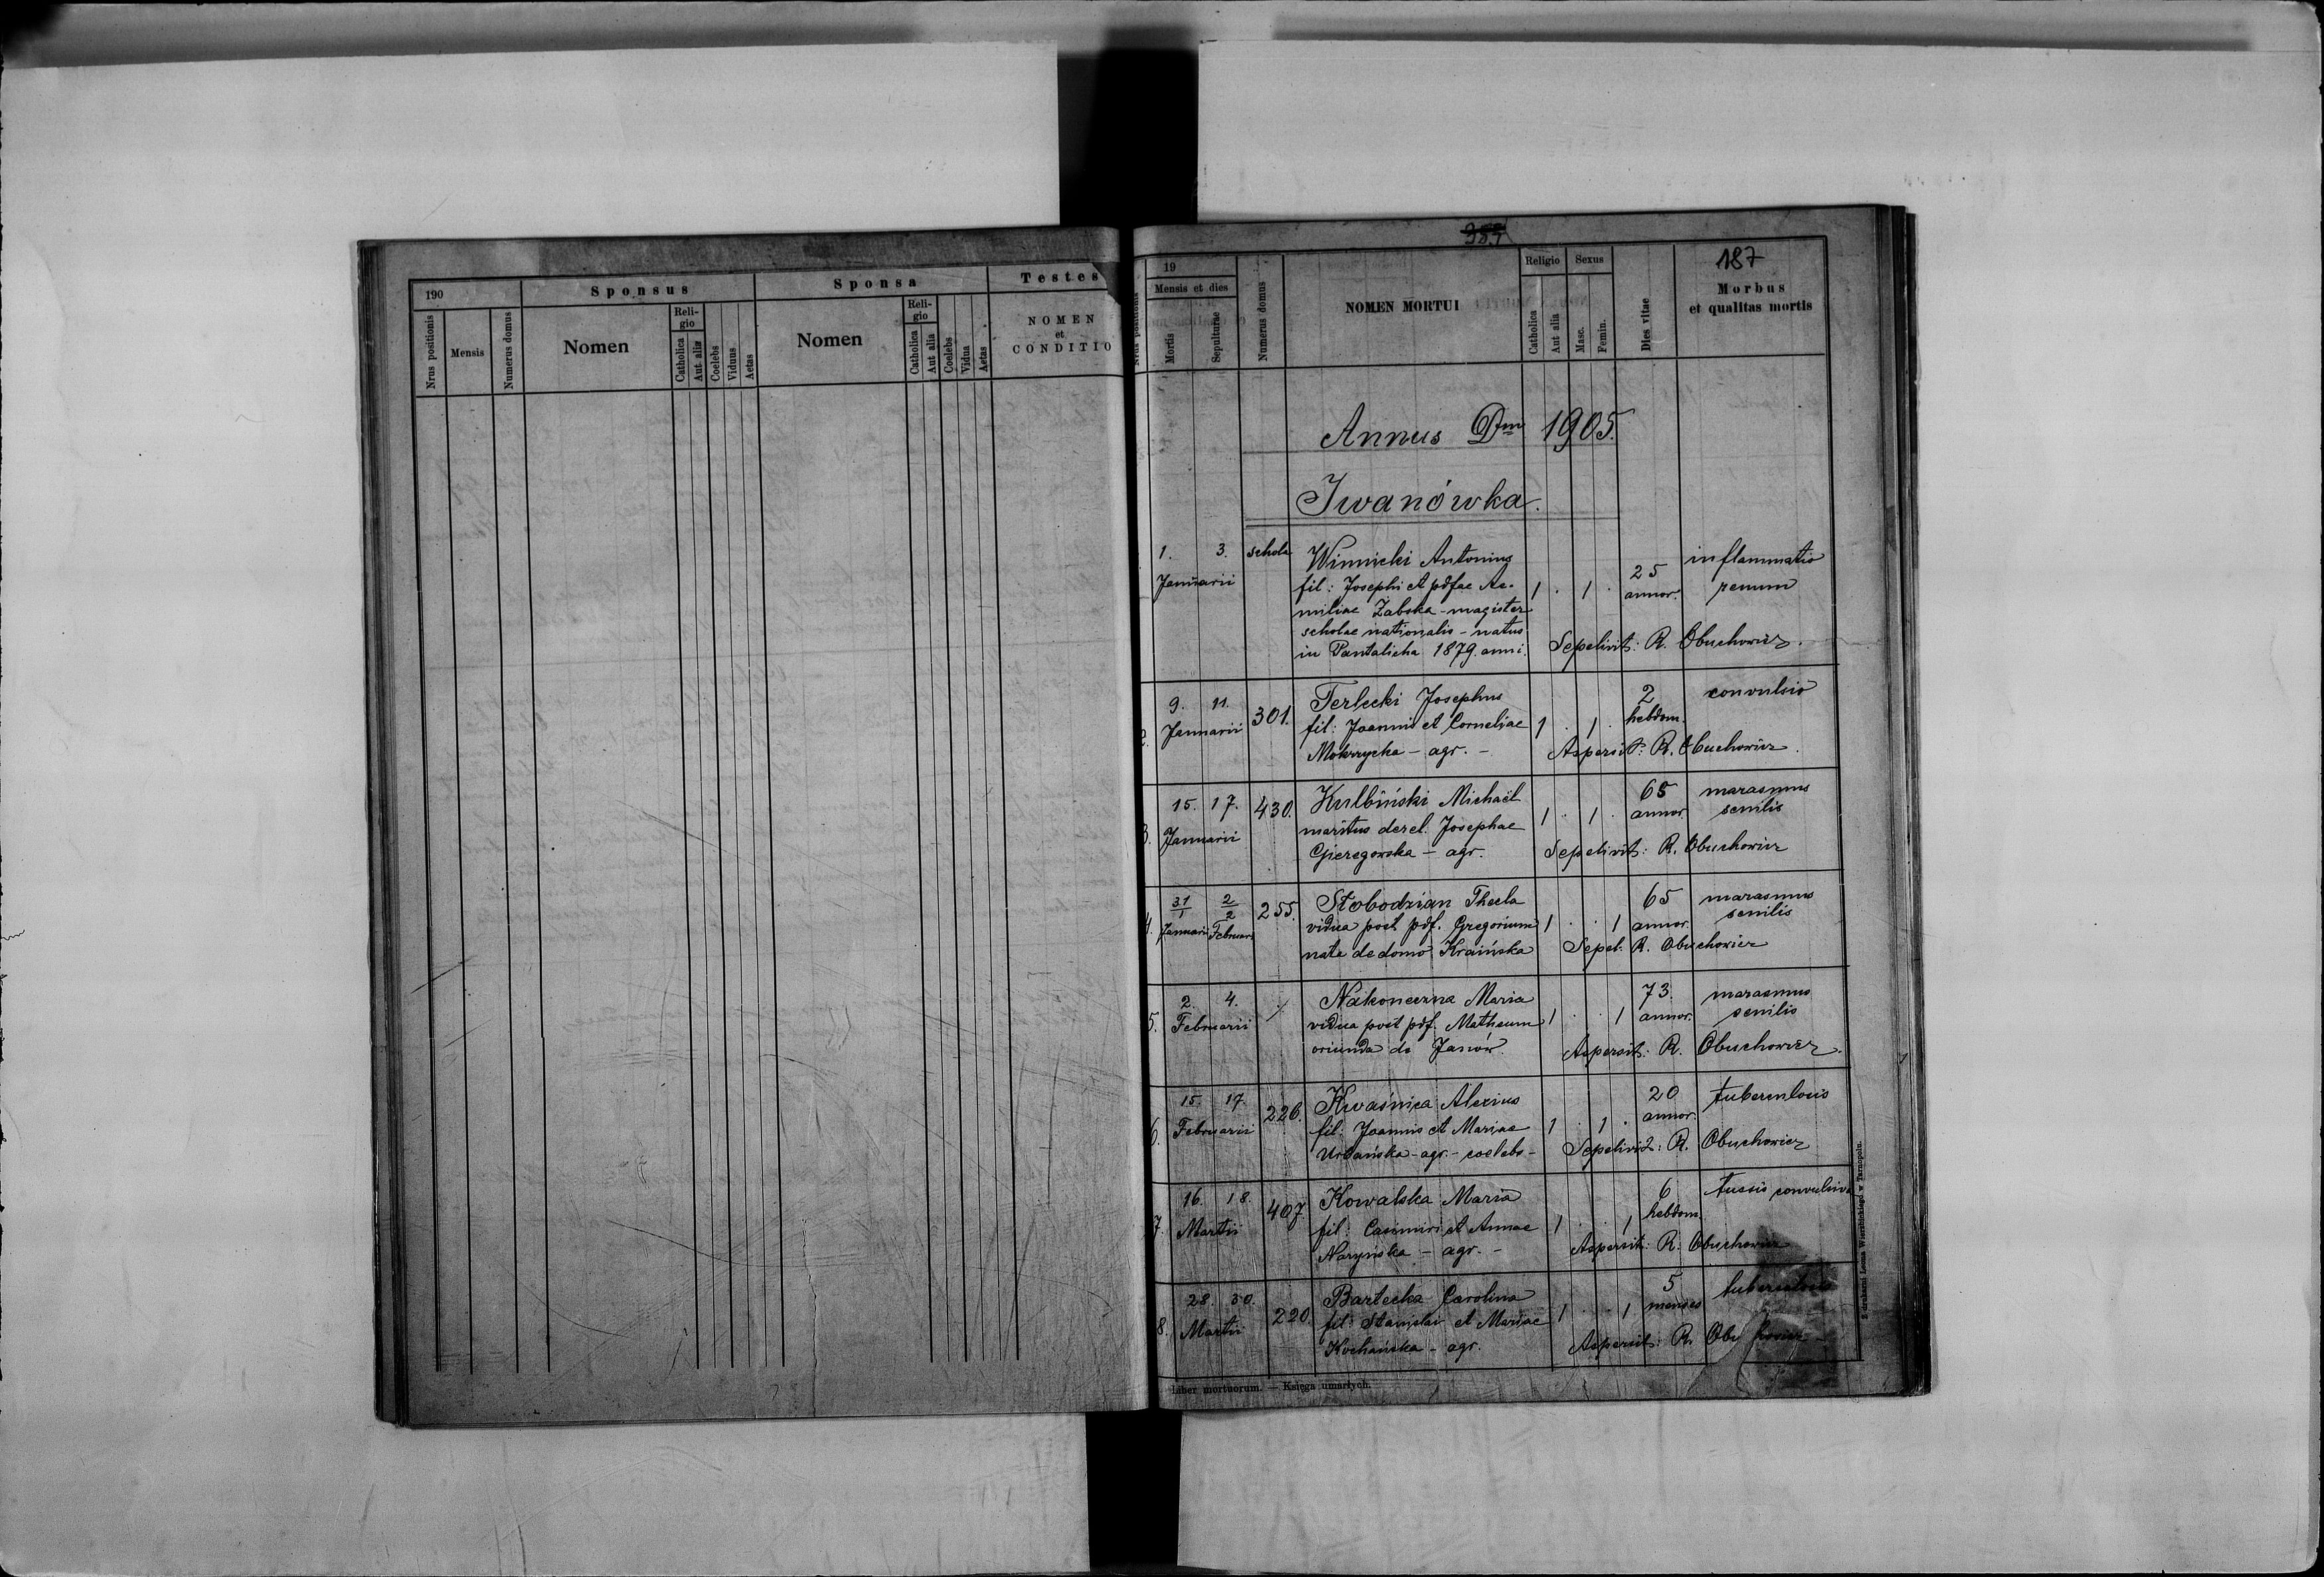 190
Sponsus
Sponsa
Testes
Nrus positionis
Mensis
Numerus domus
Nomen
Religio
Catholica
Aut alia
Coelebs
Viduus
Aetas
Nomen
Religio
Catholica
Aut alia
Coelebs
Vidua
Aetas
NOMEN
et
CONDITIO
357
19
Mensis et dies
Mortis
Sepulturae
Numerus domus
NOMEN MORTUI
Religio
Catholica
Aut alia
Sexus
Masc.
Femin.
Dies vitae
187
Morbus
et qualitas mortis
Annus Dni 1905.
Iwanówka.
1. 3. schola Winnicki Antonius 25 inflammatio
Januarii fil: Josephi et pdfae Ae- 1 . 1 . annor. renum
miliae Żabska - magister
scholae nationalis - natus
in Pantalicha 1879. anni. Sepelivit: R. Obuchowicz.
9. 11. 301. Terlecki Josephus 2 convulsio
2. Januarii fil: Joannis et Corneliae 1 . 1 . hebdom.
Mokrzycka - agr. - Aspersit: R. Obuchowicz.
15. 17. 430. Kulbiński Michaël 65 marasmus
3. Januarii maritus derel. Josephae 1 . 1 . annor. senilis
Gieregowska - agr. Sepelivit: R. Obuchowicz
31/1 2/2 255. Słobodzian Thecla 65 marasmus
4. Januarii Februarii vidua post pdf. Gregorium 1 . . 1 annor. senilis
nate de domo Kraińska Sepel. R. Obuchowicz
2. 4. / Nakoneczna Maria 73. marasmus
5. Februarii vidua post pdf. Matheum 1 . . 1 annor. senilis
oriunda de Janów. Aspersit: R. Obuchowicz.
15. 17. 226. Kwaśnica Alexius 20 tuberculosis
6. Februarii fil: Joannis et Mariae 1 . 1 . annor.
Urbańska - agr. - coelebs - Sepelivit: R. Obuchowicz
16. 18. 407 Kowalska Maria 6 tussis convulsiva
7. Martii fil: Casimiri et Annae 1 . . 1 hebdom.
Naryńska - agr. - Aspersit: R. Obuchowicz
28. 30. 220. Bartecka Carolina 5 tuberculosis
8. Martii fil: Stanislai et Mariae 1 . . 1 menses
Kochańska - agr. Aspersit: R.
Liber mortuorum. — Księga umarłych.
Z drukarni Leona Wierzbickiego w Tarnopolu.